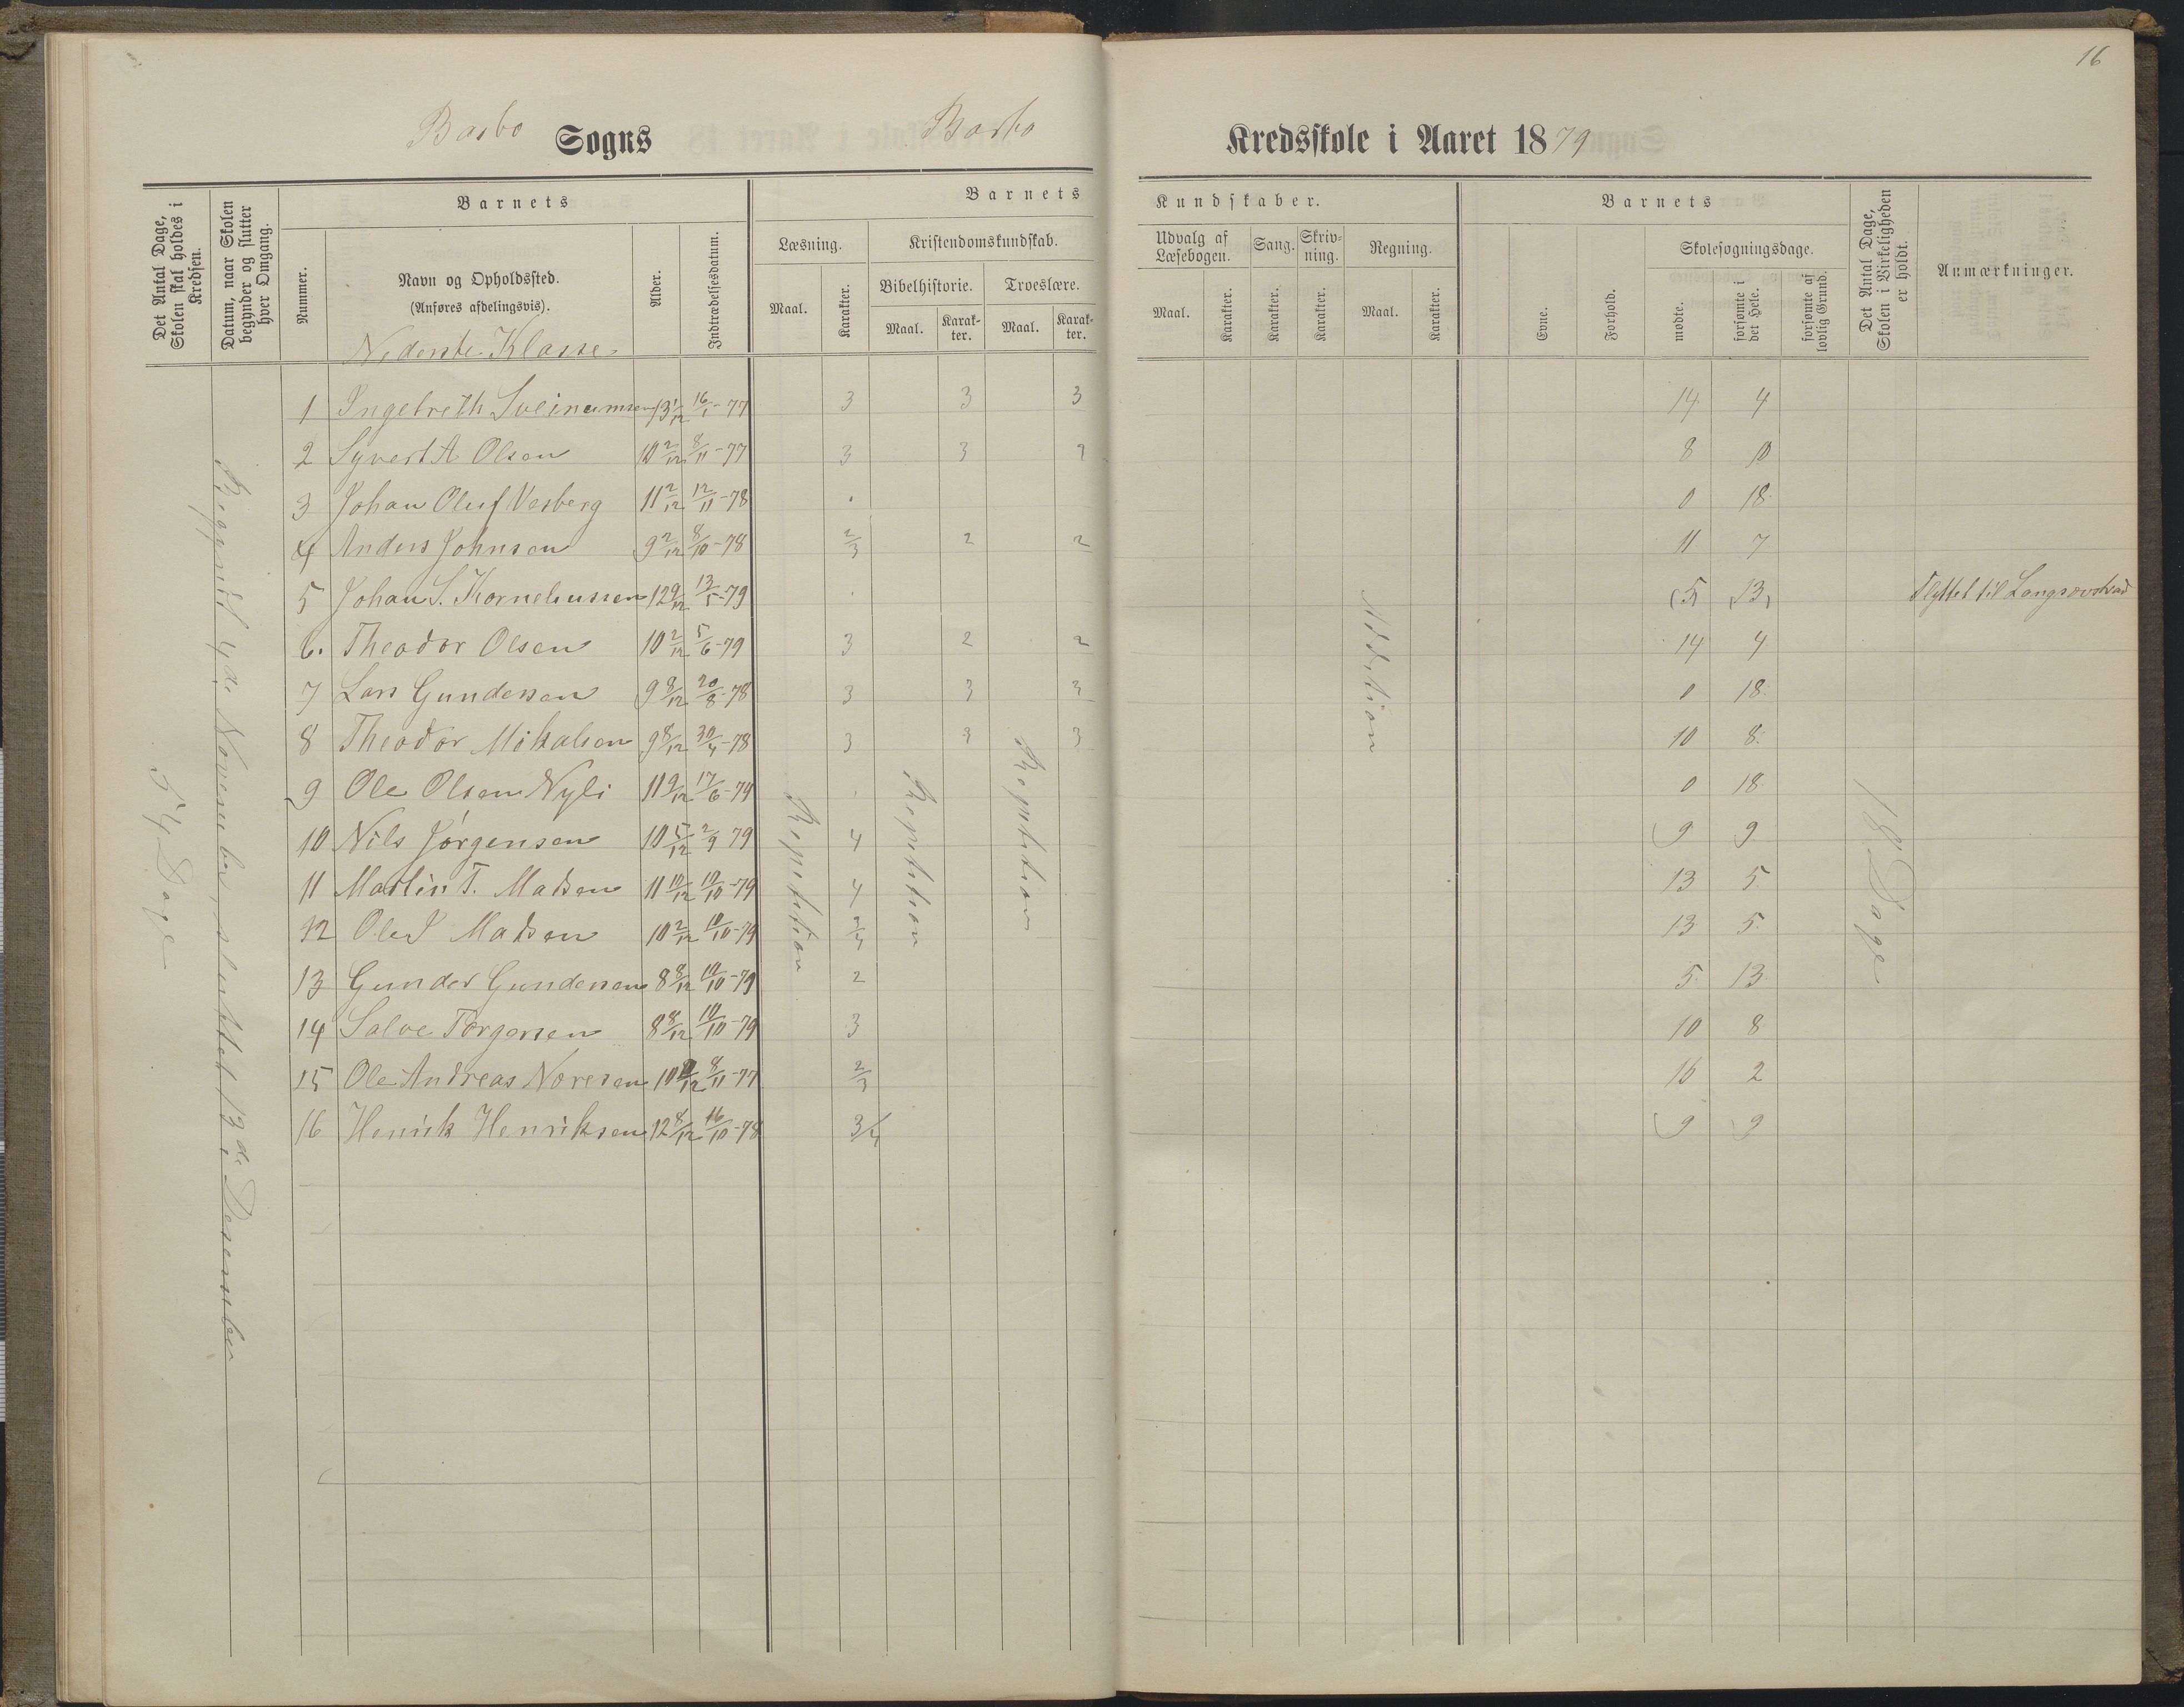 16
Barbo Sogns Barbo Kredsskole i Aaret 1879
Det Antal Dage, Skolen skal holdes i Kredsen.
Datum, naar Skolen begynder og slutter hver Omgang.
Barnets
Nummer.
Navn og Opholdssted.
(Anføres afdelingsvis).
Alder.
Indtrædelsesdatum.
Barnets Kundskaber.
Læsning.
Maal.
Karakter.
Kristendomskundskab.
Bibelhistorie.
Maal.
Karakter.
Troeslære.
Maal.
Karakter.
Udvalg af Læsebogen.
Maal.
Karakter.
Sang.
Karakter.
Skrivning.
Karakter.
Regning.
Maal.
Karakter.
Barnets
Evne.
Forhold.
Skolesøgningsdage.
mødte.
forsømte i det Hele.
forsømte af lovlig Grund.
Det Antal Dage, Skolen i Virkeligheden er holdt.
Anmærkninger.
Nederste Klasse
1 Ingebreth Sveinumsen 13 1/12 16/1-77 3 3 3 14 4
2 Syvert A Olsen 10 2/12 8/11-77 3 3 8 10
3 Johan Oluf Vesberg 11 2/12 12/11-78 0 18
4 Anders Johnsen 9 2/12 8/10-78 2/3 2 2 11 7
5 Johan S. Korneliussen 12 9/12 13/5-79 (5) (13) Flyttet til
6. Theodor Olsen 10 2/12 5/6-79 3 2 2 14 4
7 Lars Gundersen 9 8/12 20/8-78 3 3 3 0 18
8 Theodor Mikalsen 9 8/12 30/4-78 3 3 3 10 8
9 Ole Olsen Nyli 11 9/12 17/6-79 0 18
10 Nils Jørgensen 10 5/12 2/9 79 4 9 9
11 Martin T. Madsen 11 10/12 10/10-79 4 13 5
12 Ole J Madsen 10 2/12 10/10-79 3/4 13 5
13 Gunder Gundersen 8 8/12 10/10-79 2 5 13
14 Salve Torgersen 8 8/12 10/10-79 3 10 8
15 Ole Andreas Noresen 8/11-77 2/3 16 2
16 Henrik Henriksen 12 8/12 16/10-78 3/4 9 9
54 Dage
Begyndt 4de November, sluttet 13de Desember
Repetition
Repetition
Repetition
Addition
18 Dage